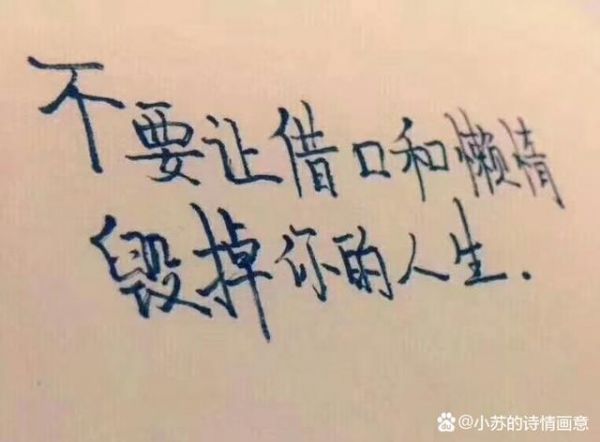 不要让借口和懒惰
毁掉你的人生.
@小苏的诗情画意